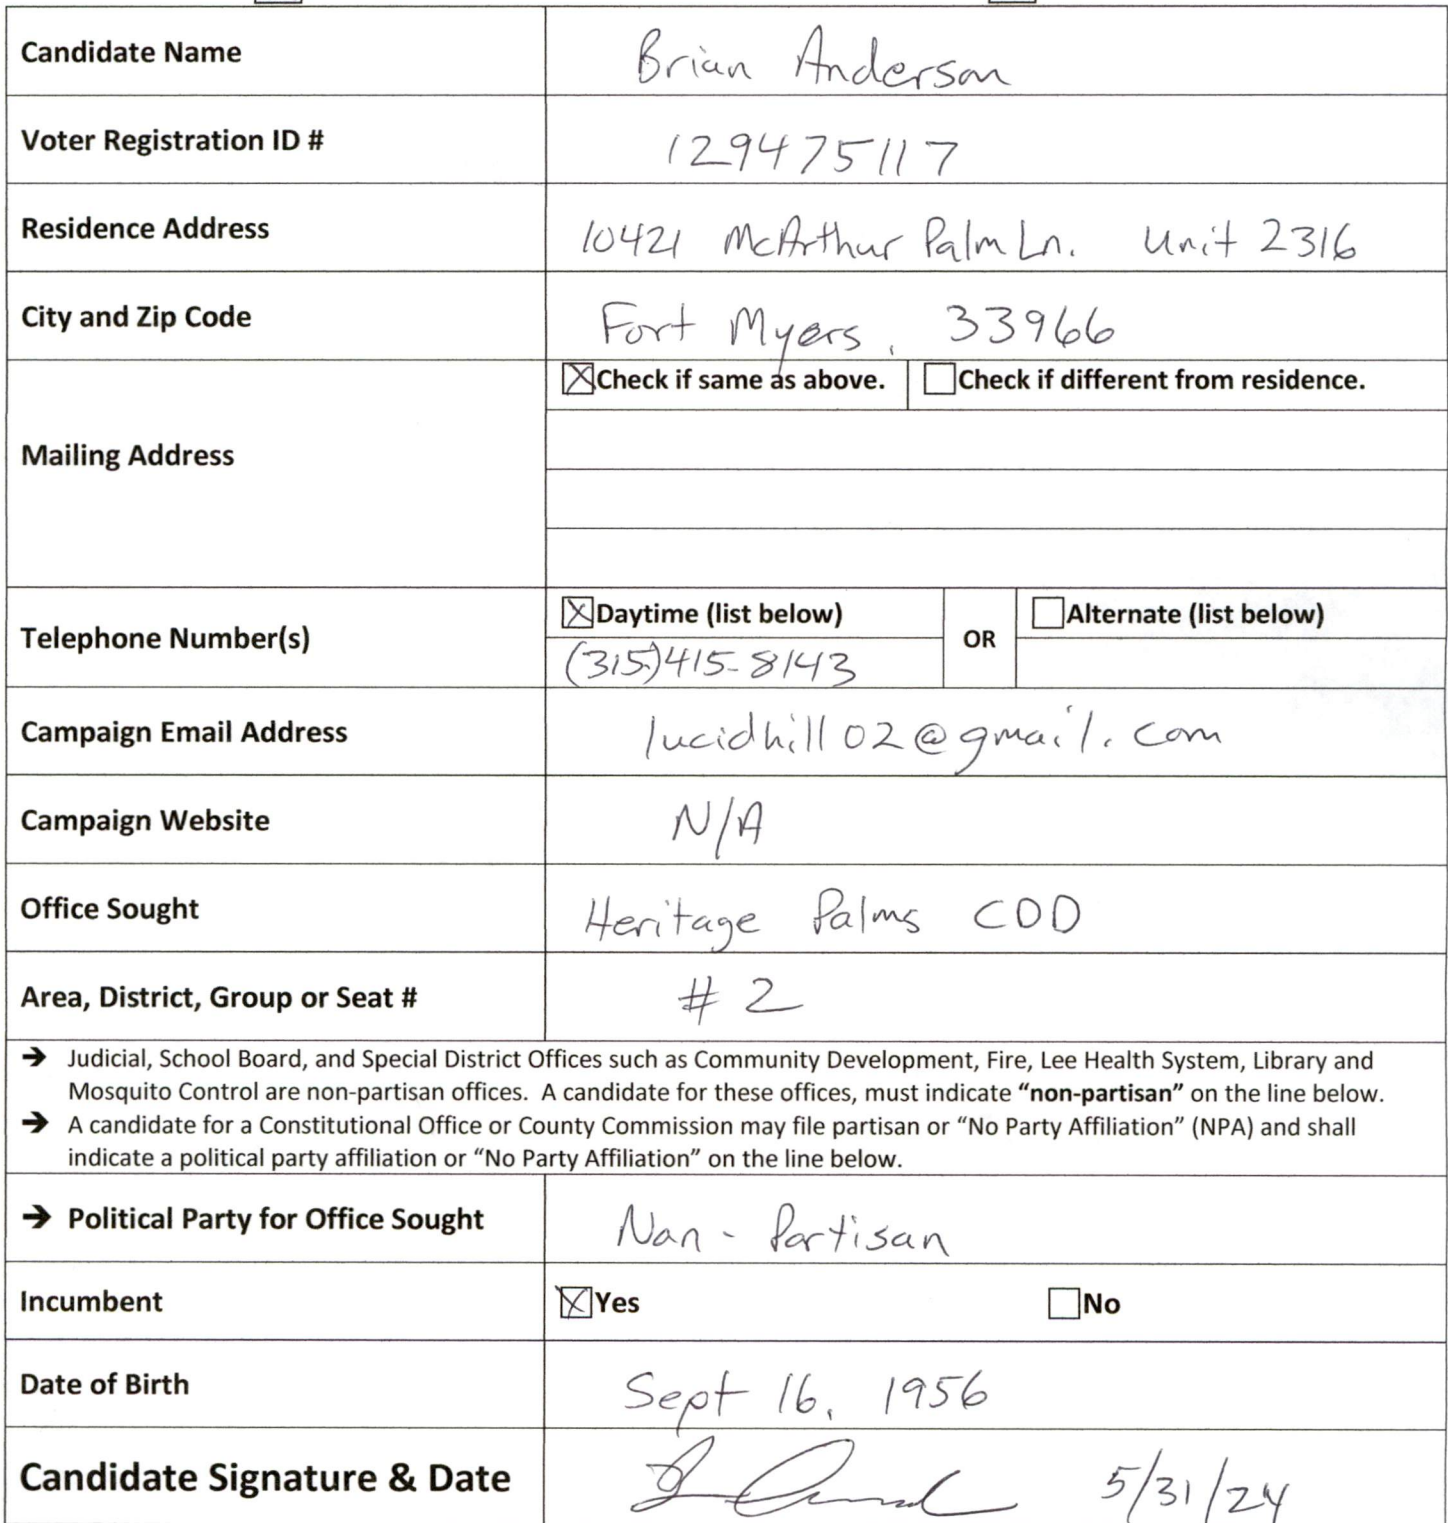 Candidate Name Brian Anderson
Voter Registration ID # 129475117
Residence Address 10421 McArthur Palm Ln. Unit 2316
City and Zip Code Fort Myers, 33966
☒Check if same as above. ☐Check if different from residence.
Mailing Address
☒Daytime (list below) ☐Alternate (list below)
Telephone Number(s) OR
(315)415-8143
Campaign Email Address lucidhill02@gmail.com
Campaign Website N/A
Office Sought Heritage Palms CDD
Area, District, Group or Seat # # 2
➔ Judicial, School Board, and Special District Offices such as Community Development, Fire, Lee Health System, Library and
Mosquito Control are non-partisan offices. A candidate for these offices, must indicate “non-partisan” on the line below.
➔ A candidate for a Constitutional Office or County Commission may file partisan or “No Party Affiliation” (NPA) and shall
indicate a political party affiliation or “No Party Affiliation” on the line below.
➔ Political Party for Office Sought Non-Partisan
Incumbent ☒Yes ☐No
Date of Birth Sept 16, 1956
Candidate Signature & Date 5/31/24